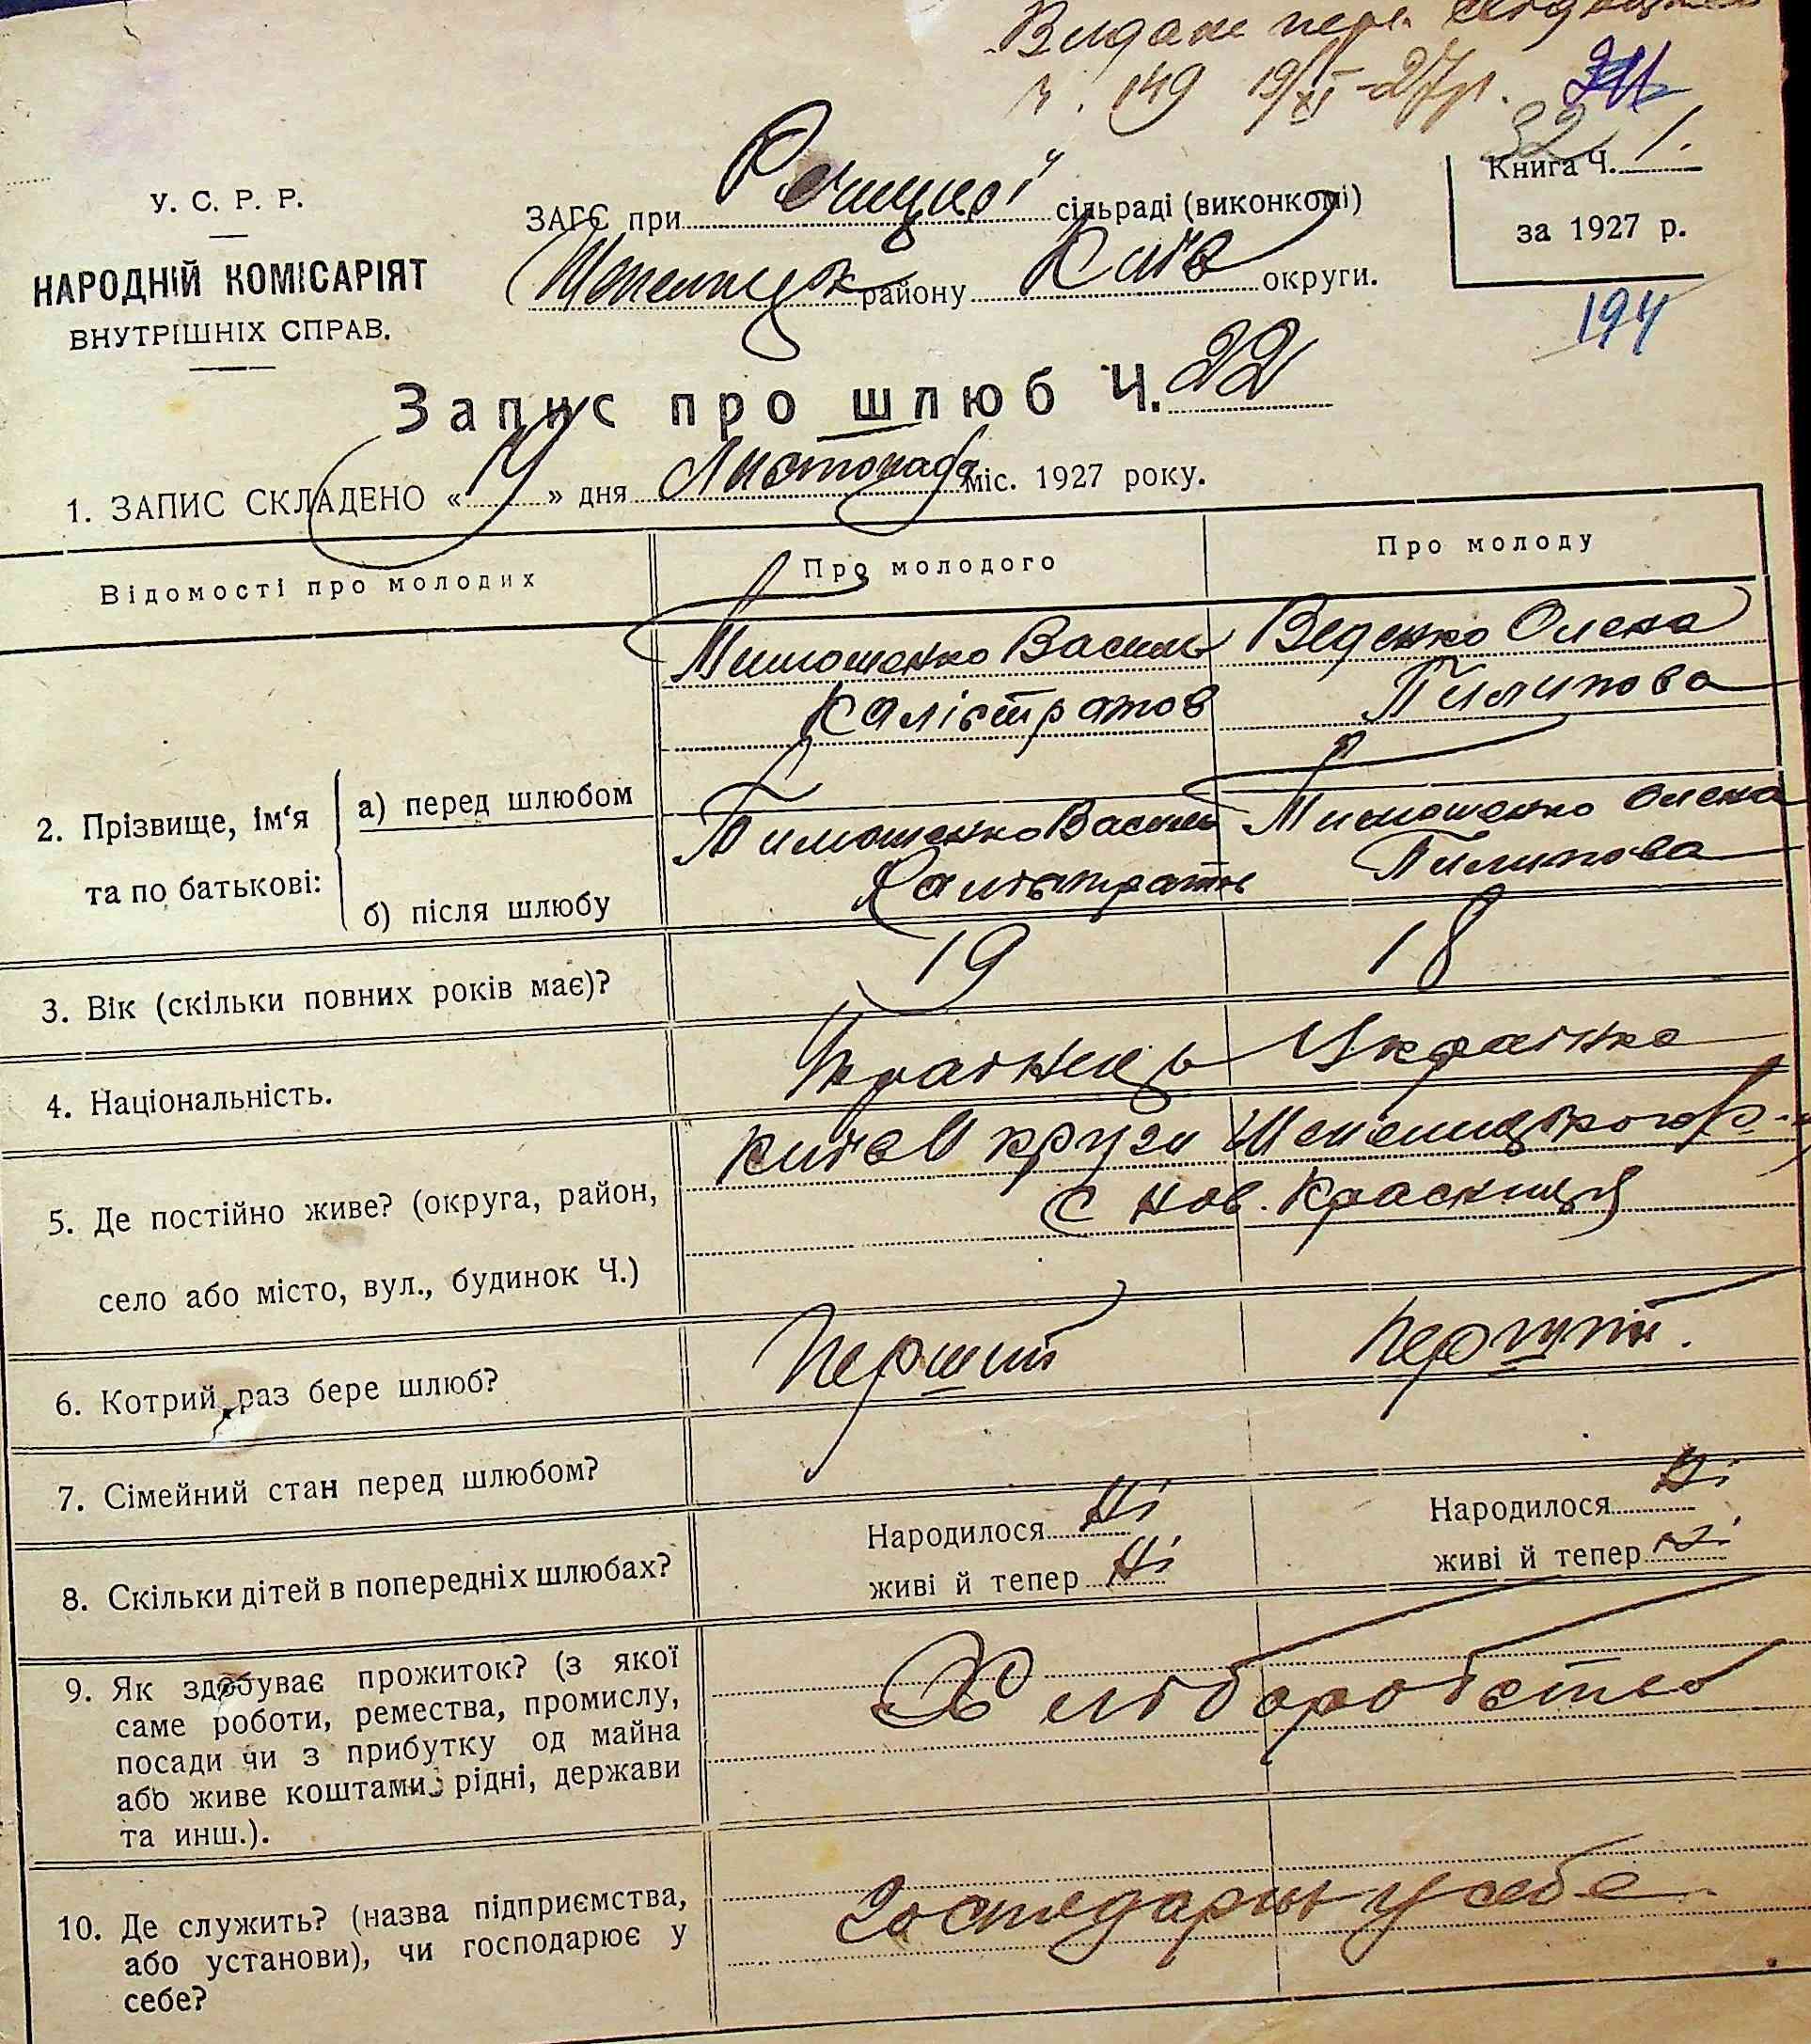 Видане пер.
ч. 149 19/XI-27р.
32
У. С. Р. Р.
НАРОДНІЙ КОМІСАРІЯТ
ВНУТРІШНІХ СПРАВ.
ЗАГС при сільраді (виконкомі)
району Київ округи.
Книга Ч. 1.
за 1927 р.
194
Запис про шлюб Ч. 22
1. ЗАПИС СКЛАДЕНО « 14 » дня Листопада міс. 1927 року.
Відомості про молодих
Про молодого
Про молоду
2. Прізвище, ім‘я та по батькові:
а) перед шлюбом
Тимошенко Василь
Калістратов
Веденко Олена
Пилипова
б) після шлюбу
Тимошенко Василь
Калістратов
Тимошенко Олена
Пилипова
3. Вік (скільки повних років має)?
19
18
4. Національність.
Українець
Українка
5. Де постійно живе? (округа, район,
село або місто, вул., будинок Ч.)
Київ округи
с Нов. Красниця
6. Котрий раз бере шлюб?
Перший
Перший.
7. Сімейний стан перед шлюбом?
8. Скільки дітей в попередніх шлюбах?
Народилося Ні
живі й тепер Ні
Народилося Ні
живі й тепер ні
9. Як здобуває прожиток? (з якої
саме роботи, ремества, промислу,
посади чи з прибутку од майна
або живе коштами рідні, держави
та инш.).
Хліборобство
10. Де служить? (назва підприємства,
або установи), чи господарює у
себе?
Господарює у себе